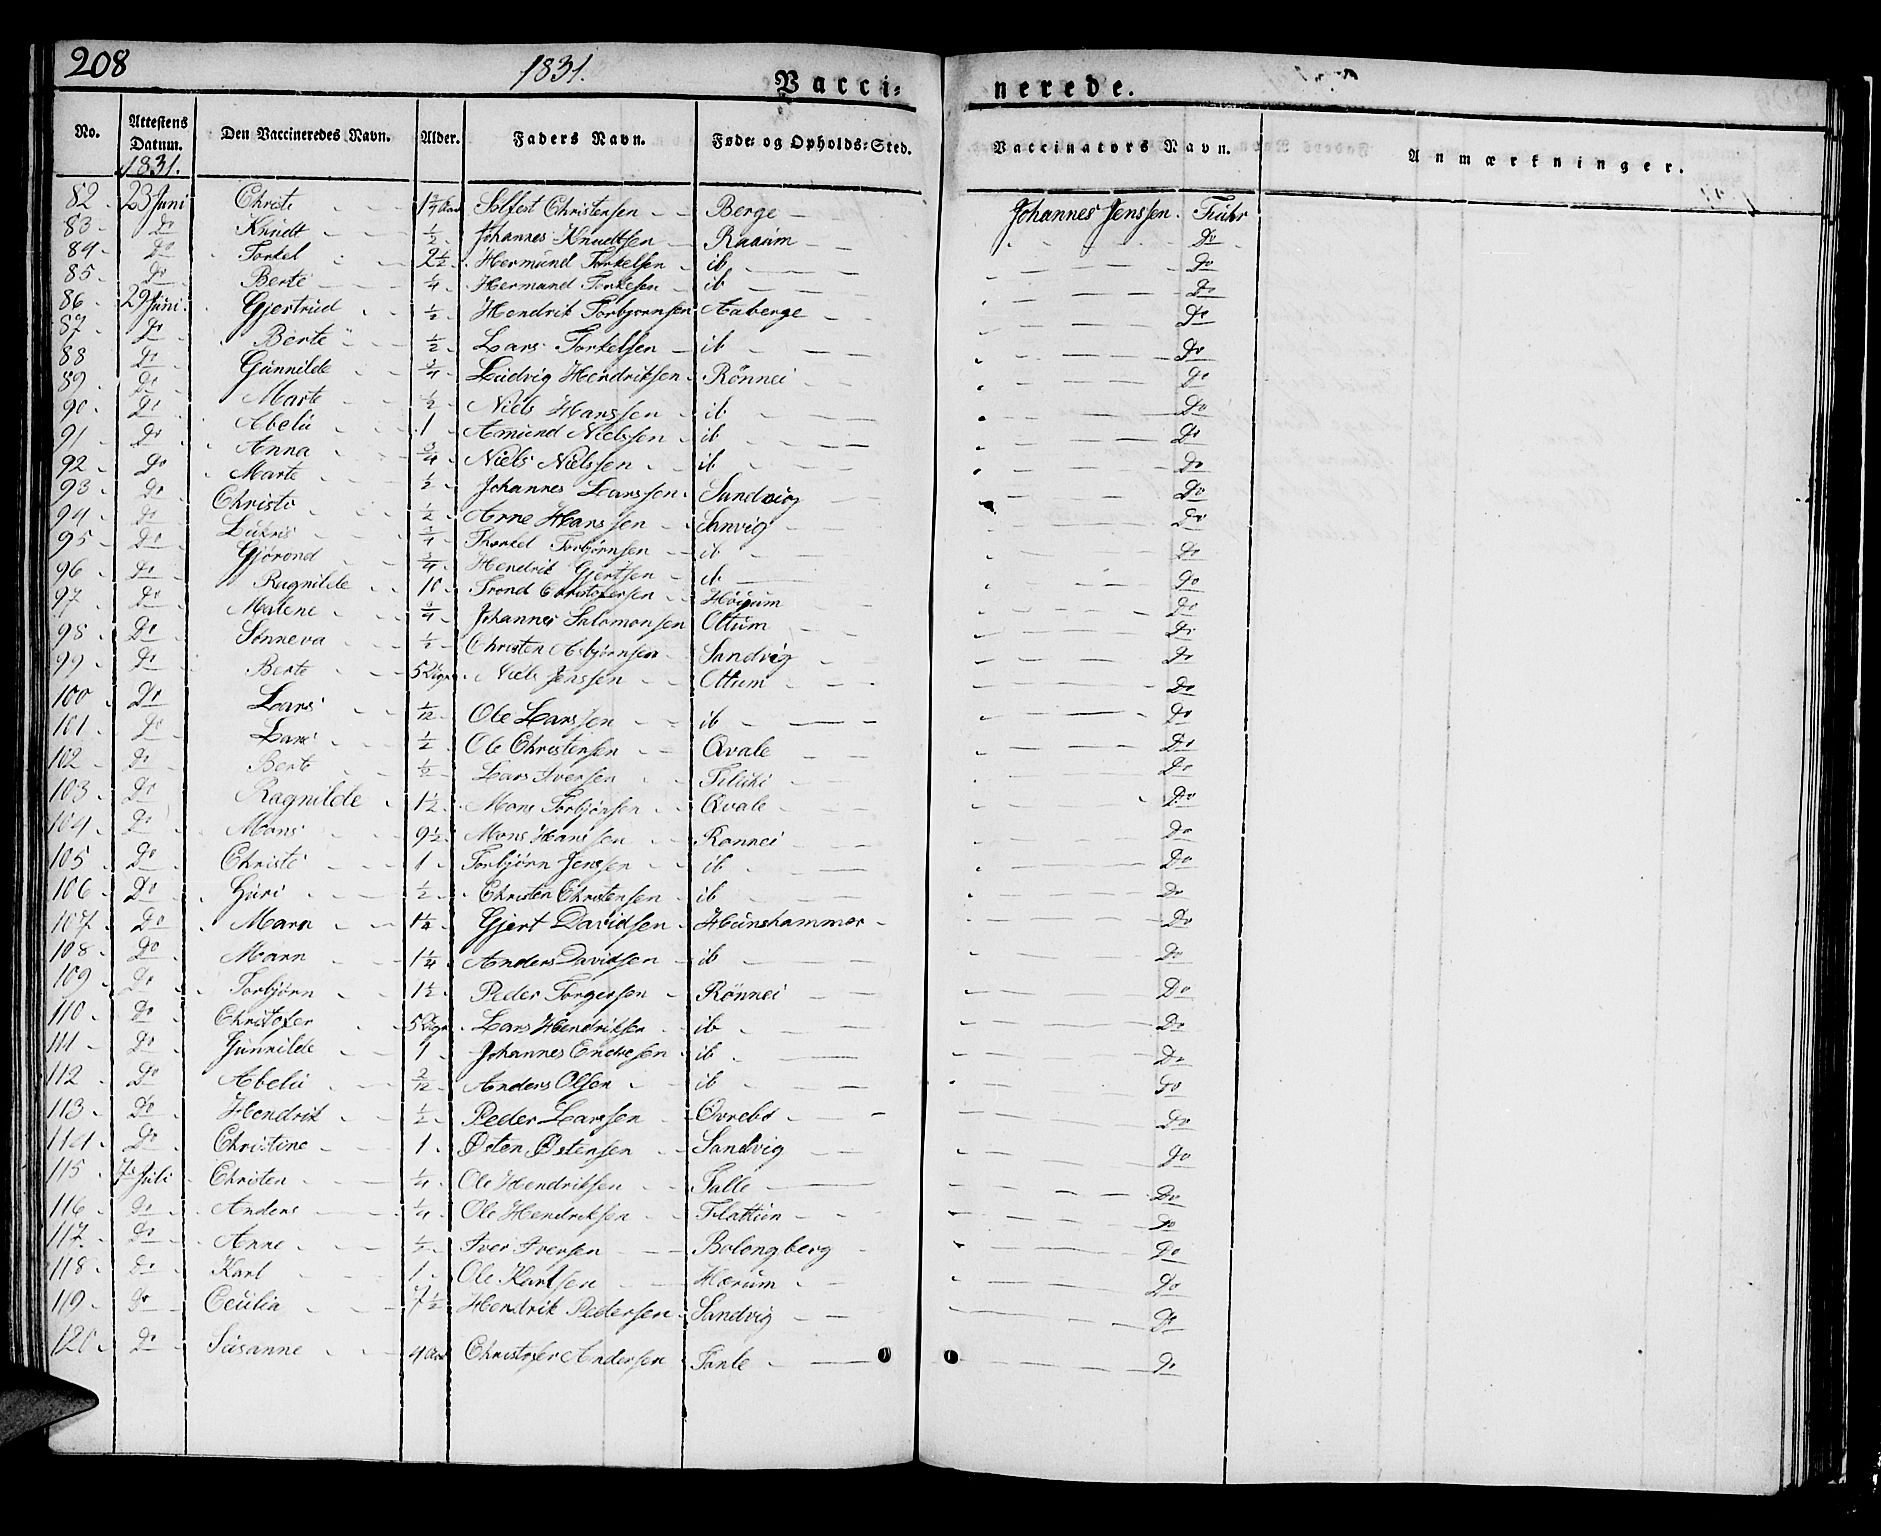 208 1831. Vacci= nerede.
No. Attestens Datum. 1831. Den Vaccineredes Navn. Alder. Faders Navn. Føde= og Opholds=Sted. Vaccinators Navn. Anmærkninger.
82 23 Juni Christi Solfest Christensen Berge Johannes Jenssen
83 Do Knudt 1/2 Johannes Knudtsen Raaum Do
84 Do Torkel 2 1/2 Hermund Torkelsen ib Do
85 Do Berte 1/4 Hermund Torkelsen ib Do
86 29 Juni Gjertrud 1/2 Hendrik Torbjørnsen Aaberge Do
87 Do Berte 1/2 Lars Torkelsen ib Do
88 Do Gunnilde 3/4 Ludvig Hendriksen Rönnei Do
89 Do Marte 1/2 Niels Hanssen ib Do
90 Do Abelu 1 Amund Nielssen ib Do
91 Do Anna 3/4 Niels Nielssen ib Do
92 Do Marte 1/2 Johannes Larssen Sandvig Do
93 Do Christi 1/2 Arne Hanssen Sanvig Do
94 Do 3/4 Thorkel Torbjørnsen ib Do
95 Do Gjörond 3/4 Hendrik Gjertsen ib Do
96 Do Ragnilde 10 Trond Christofersen Höium Do
97 Do Malene 3/4 Johannes Salomonsen Ottum Do
98 Do Sønneva 1/2 Christen Asbjørnsen Sandvig Do
99 Do Berte Niels Jenssen Ottum Do
100 Do Lars 1/12 Ole Larssen ib Do
101 Do Lars 1/2 Ole Christensen Qvale Do
102 Do Berte 1/2 Lars Iversen Do
103 Do Ragnilde 1 1/2 Mons Torbjönsen Qvale Do
104 Do Mons 9 1/2 Mons Hanssen Rønnei Do
105 Do Christi 1 Torbjörn Jenssen ib Do
106 Do Guri 1/2 Christen Christensen ib Do
107 Do Marn 1 1/4 Gjert Davidsen Hunshammer Do
108 Do Marn 1 1/4 Anders Davidsen ib Do
109 Do Torbjörn 1 1/2 Peder Torgersen Rönnei Do
110 Do Christofer Lars Hendriksen ib Do
111 Do Gunnilde 1 Johannes Endresen ib Do
112 Do Abelu 2/12 Anders Olsen ib Do
113 Do Hendrik 1/2 Peder Larssen Övrebö Do
114 Do Christine 1 Østen Østensen Sandvig Do
115 7 Juli Christen 1/4 Ole Hendriksen Talle Do
116 Do Anders 1/4 Ole Hendriksen Flatten Do
117 Do Anne 1/2 Iver Iversen Bolongberg Do
118 Do Karl 1 Ole Karlsen Hærum Do
119 Do Cecilia 7 1/2 Hendrik Pedersen Sandvig Do
120 Do Susanne 4 Aar Christofer Andersen Tante Do